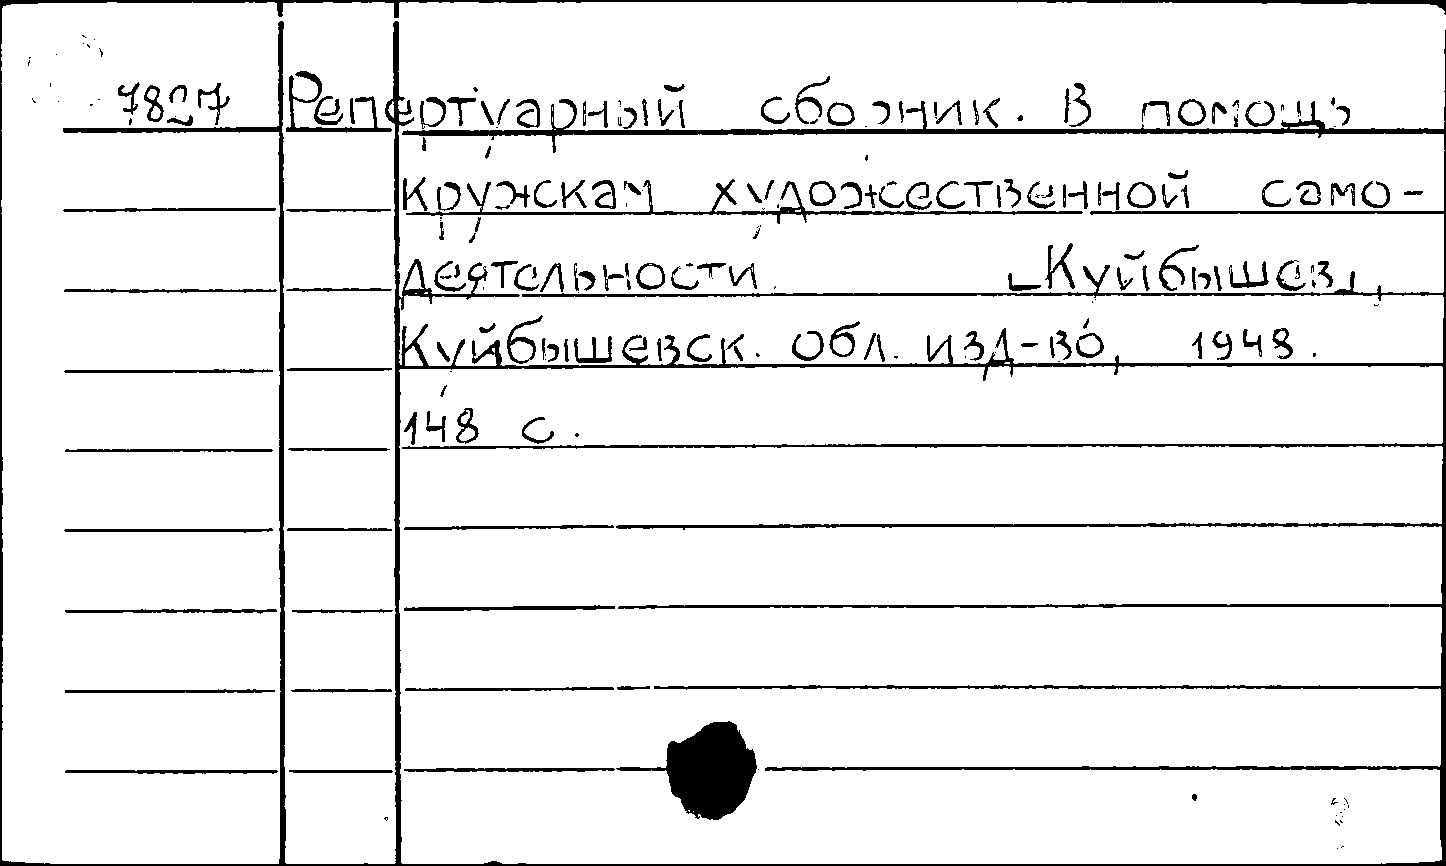 7827 Репертуарный сборник. В помощь
кружкам художественной само-
деятельности. [Куйбышев],
Куйбышевск. обл. изд-во, 1948.
148 с.